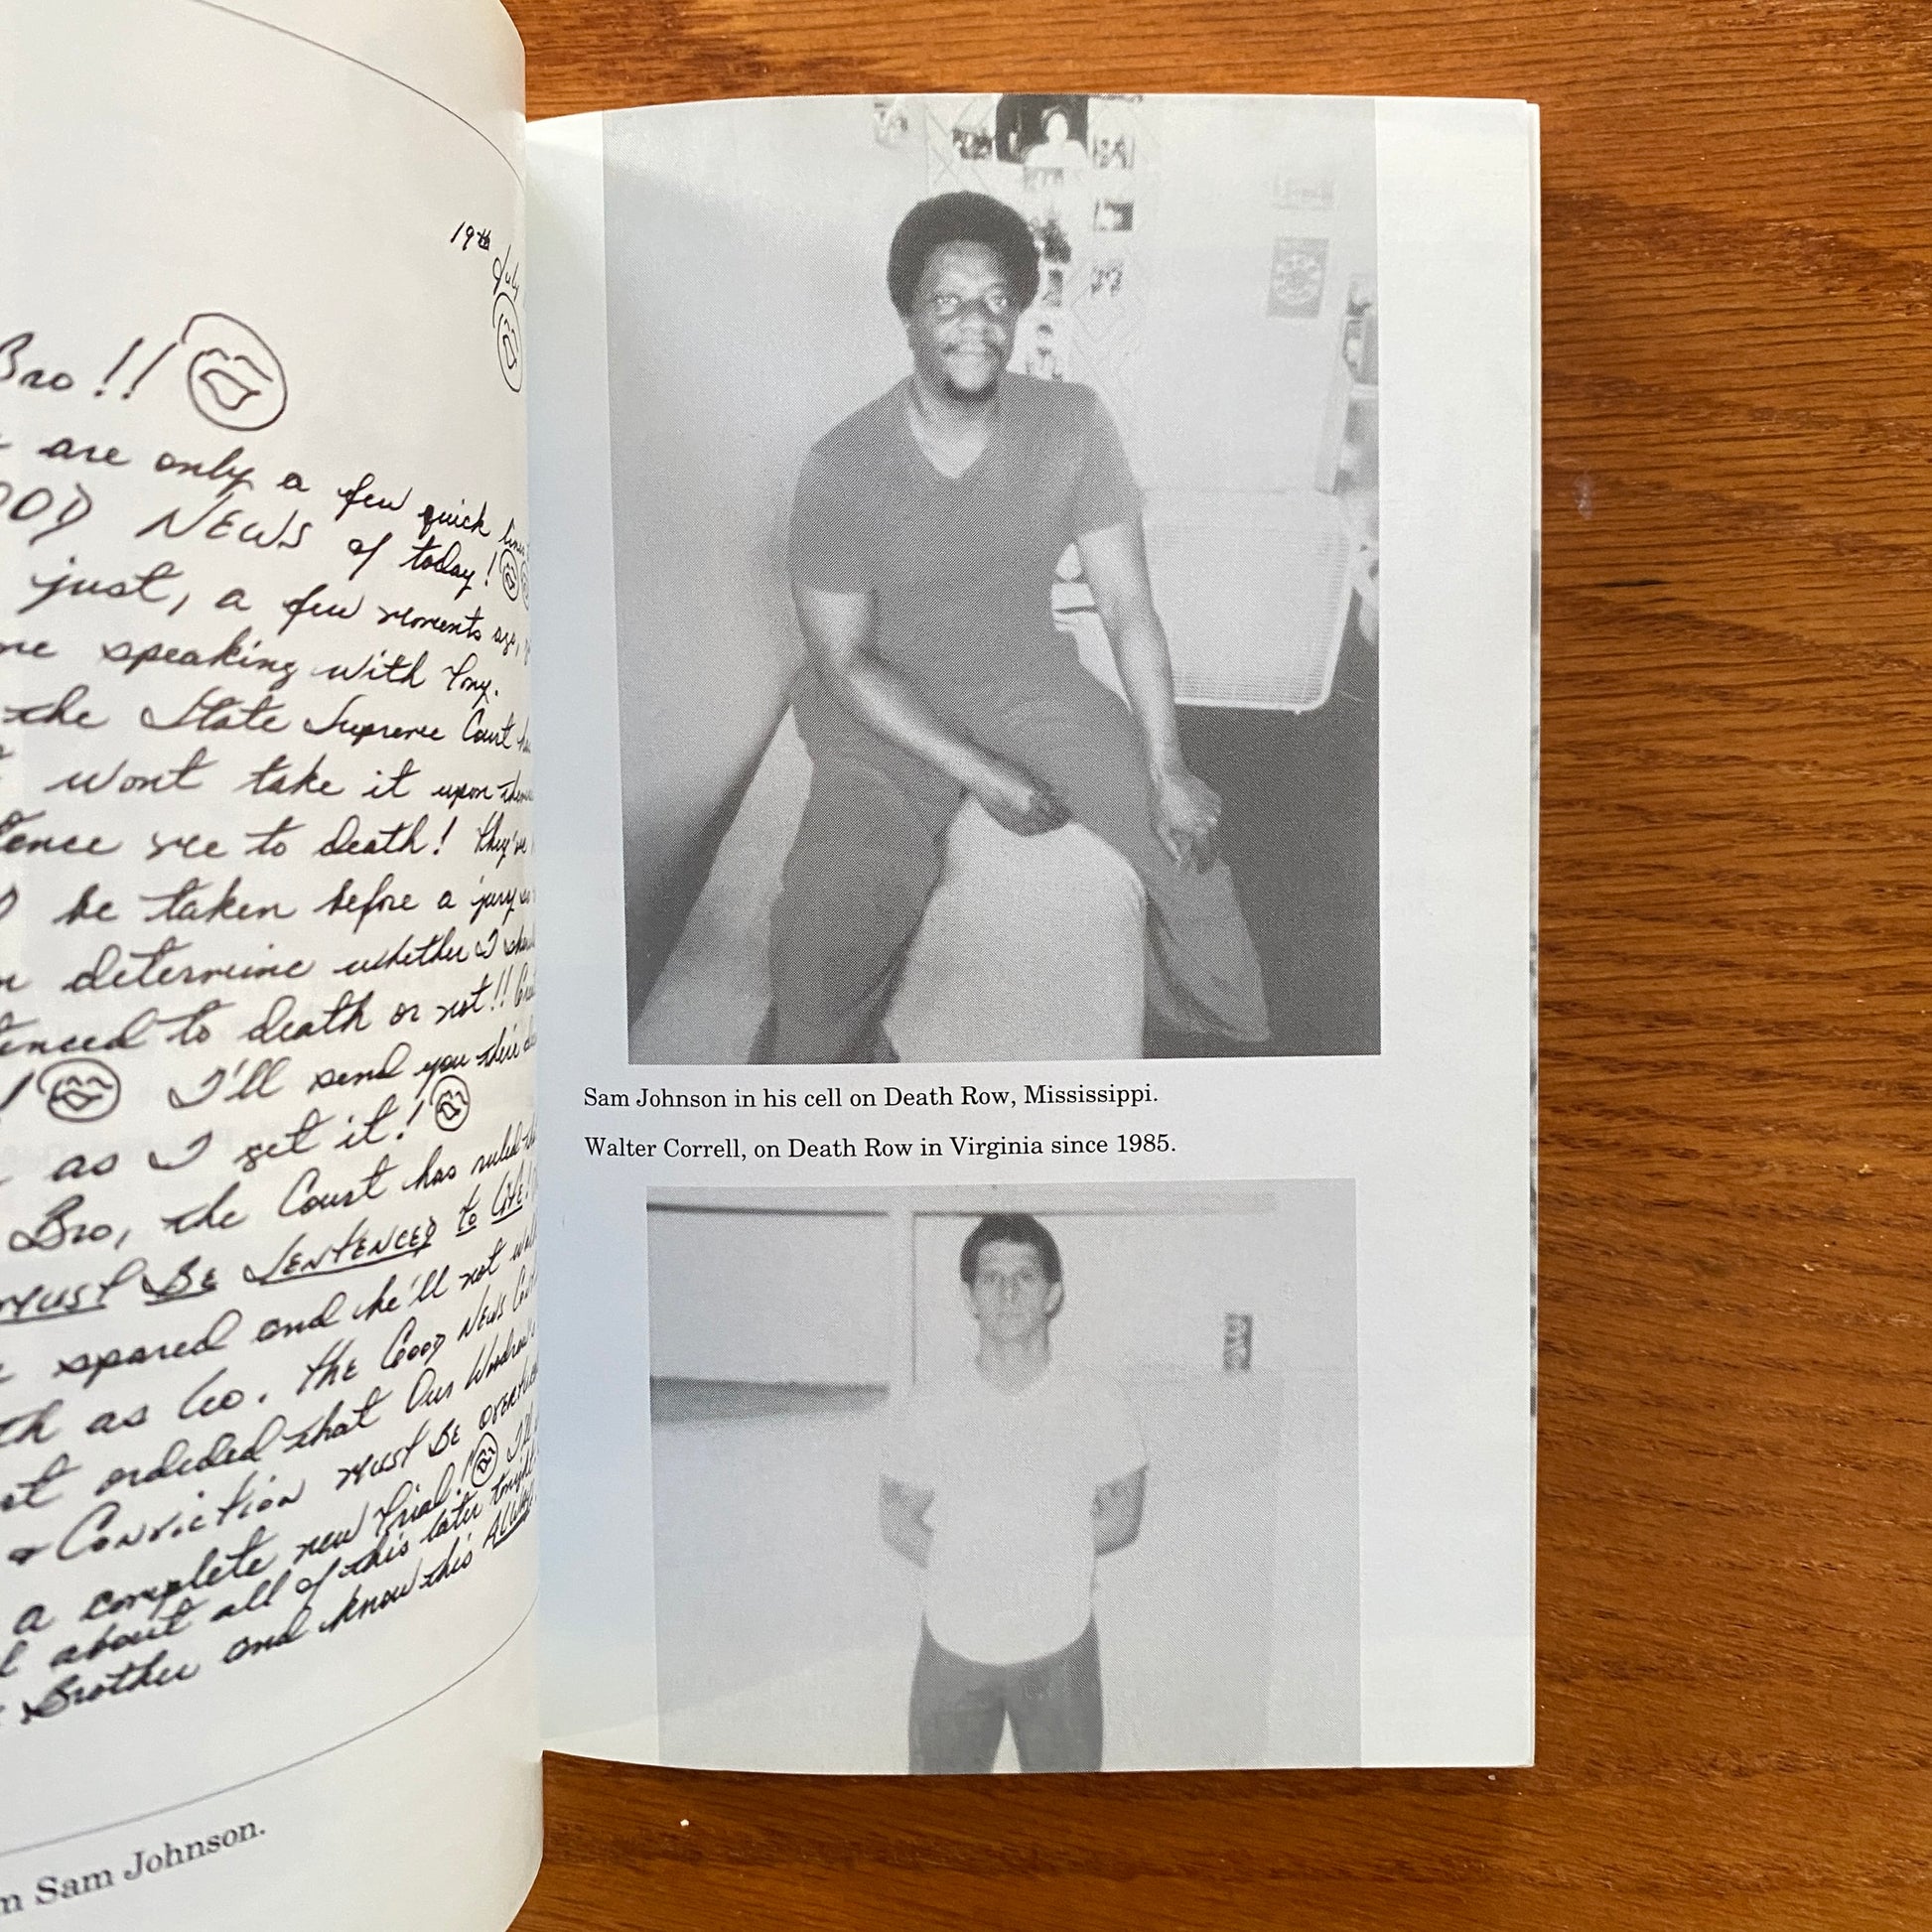 19th July
Bro!!
are only a few quick lines
GOOD NEWS of today!
just, a few moments ago,
me speaking with Tony.
the State Supreme Court
wont take it upon
me to death! They've
be taken before a jury
determine whether I
to death or not!!
I'll send you their
as I get it!
Bro, the Court has ruled
MUST BE SENTENCED to LIFE!
spared and he'll not
as Leo. THE GOOD NEWS
ordeded that Our
& Conviction MUST BE
a complete new trial! I'll
about all of this later tonight
Brother and know this ALWAYS
Sam Johnson.
Sam Johnson in his cell on Death Row, Mississippi.
Walter Correll, on Death Row in Virginia since 1985.